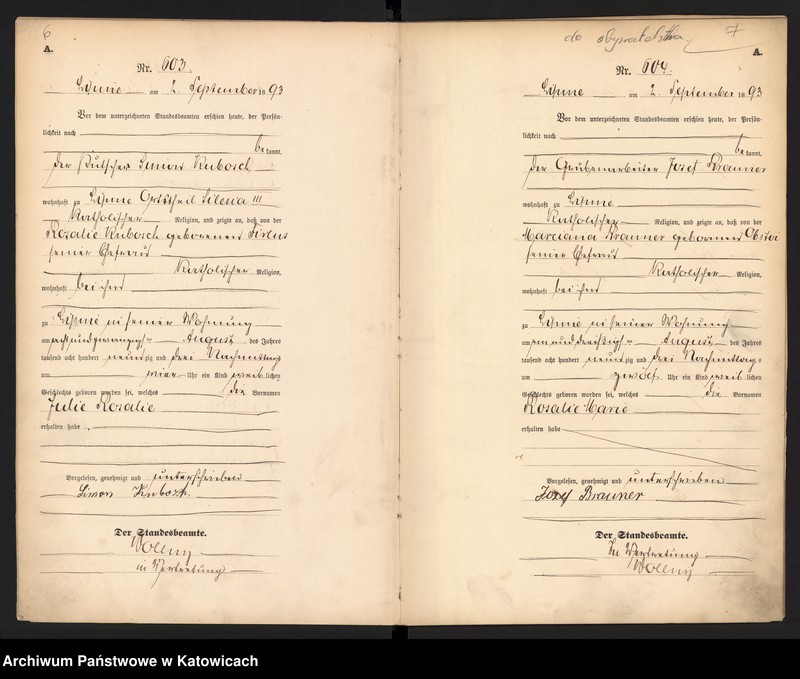 6
A.
Nr. 603.
am 2. September 1893
Vor dem unterzeichneten Standesbeamten erschien heute, der Persön-
lichkeit nach
be kannt,
der Kutscher Simon Kubosch
wohnhaft zu Ortstheil Silesia III
Katholischer Religion, und zeigte an, daß von der
Rosalie Kubosch geborenen
seiner Ehefrau
Katholischer Religion,
wohnhaft bei ihm
zu in seiner Wohnung
am acht und zwanzigsten August des Jahres
tausend acht hundert neunzig und drei Nachmittags
um vier Uhr ein Kind weiblichen
Geschlechts geboren worden sei, welches die Vornamen
Julie Rosalie
erhalten habe.
Vorgelesen, genehmigt und unterschrieben
Simon Kubosch.
Der Standesbeamte.
Wolleny
in Vertretung
do obywatelstwa 7
A.
Nr. 604.
am 2. September 1893
Vor dem unterzeichneten Standesbeamten erschien heute, der Persön-
lichkeit nach
be kannt,
der Grubenarbeiter Josef Brauner
wohnhaft zu
Katholischer Religion, und zeigte an, daß von der
Marciana Brauner geborenen
seiner Ehefrau
Katholischer Religion,
wohnhaft bei ihm
zu in seiner Wohnung
am ein und dreißigsten August des Jahres
tausend acht hundert neunzig und drei Nachmittags
um zwölf Uhr ein Kind weiblichen
Geschlechts geboren worden sei, welches die Vornamen
Rosalie Marie
erhalten habe
Vorgelesen, genehmigt und unterschrieben
Jozef Brauner
Der Standesbeamte.
In Vertretung
Wolleny
Archiwum Państwowe w Katowicach